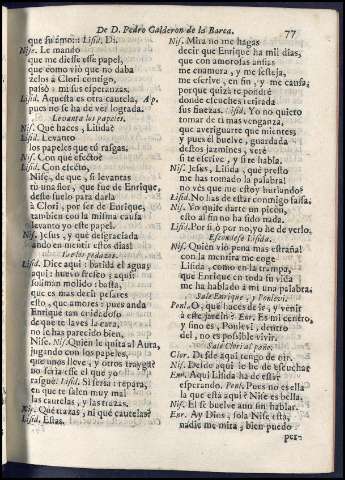 De D. Pedro Calderon de la Barca.
77
que su amor: Lisid. Di.
Nise. Le mando
que me diesse esse papel,
que como viò que no daba
zelos à Clori contigo,
passò à mi sus esperanzas.
Lisid. Aquesta es otra cautela, Ap.
pues no se ha de ver lograda.
Levanta los papeles.
Nis. Què haces, Lisida?
Lisid. Levanto
los papeles que tù rasgas.
Nis. Con què efecto?
Lisid. Con efecto,
Nise, de que, si levantas
tù una flor, que fue de Enrique,
desse suelo para darla
à Clori, por ser de Enrique,
tambien con la misma causa
levanto yo este papel.
Nis. Jesus, y què desgraciada
ando en mentir estos dias!
Lee los pedazos.
Lisid. Dice aqui: batida el agua;
aqui: huevo fresco; aqui:
soliman molido: basta,
que es mas decir pesares
esto, que amores; pues anda
Enrique tan cuidadoso
de que te laves la cara,
no le has parecido bien,
Nise. Nis. Quien le quita al Aura,
jugando con los papeles,
que unos lleve, y otros trayga?
no seria esse el que yo
rasguè. Lisid. Sì seria: repara,
en que te salen muy mal
las cautelas, y las trazas.
Nis. Què trazas, ni què cautelas?
Lisid. Estas.
Nis. Mira no me hagas
decir que Enrique ha mil dias,
que con amorosas ansias
me enamora, y me festeja,
me escrive, en fin, y me cansa;
porque quizà te pondrè
donde escuches retirada
sus finezas. Lisid. Yo no quiero
tomar de ti mas venganza,
que averiguarte que mientes,
y pues èl buelve, guardada
destos jazmines, verè
si te escrive, y si te habla.
Nis. Jesus, Lisida, què presto
me has tomado la palabra!
no vès que me estoy burlando?
Lisid. No has de estar conmigo falsa.
Nis. Yo quise darte un picòn,
esto al fin no ha sido nada.
Lisid. Por sì ò por no, yo he de verlo.
Escondese Lisida.
Nis. Quien viò pena mas estraña!
con la mentira me coge
Lisida, como en la trampa,
que Enrique en toda su vida
me ha hablado à mi una palabra.
Sale Enrique, y Ponlevì.
Ponl. O, què haces de ir, y venir
à este jardin? Enr. Es mi centro,
y sino es, Ponlevì, dentro
del, no es possible vivir.
Sale Clori al paño.
Clor. Desde aqui tengo de oir.
Nis. Desde aqui le he de escuchar
Enr. Aqui Lisida ha de estar
esperando. Pont. Pues no es ella
la que està aqui? Nise es bella.
Nis. El se buelve aun sin hablar.
Enr. Ay Dios, sola Nise està,
nadie me mira, bien puedo
per-